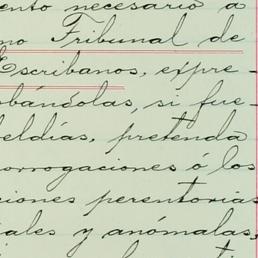 ento necesario a
no Tribunal de
Escribanos, expre-
obándolas, si fue-
beldías, pretenda
orrogaciones ó los
ciones perentorias
iales y anómalas,